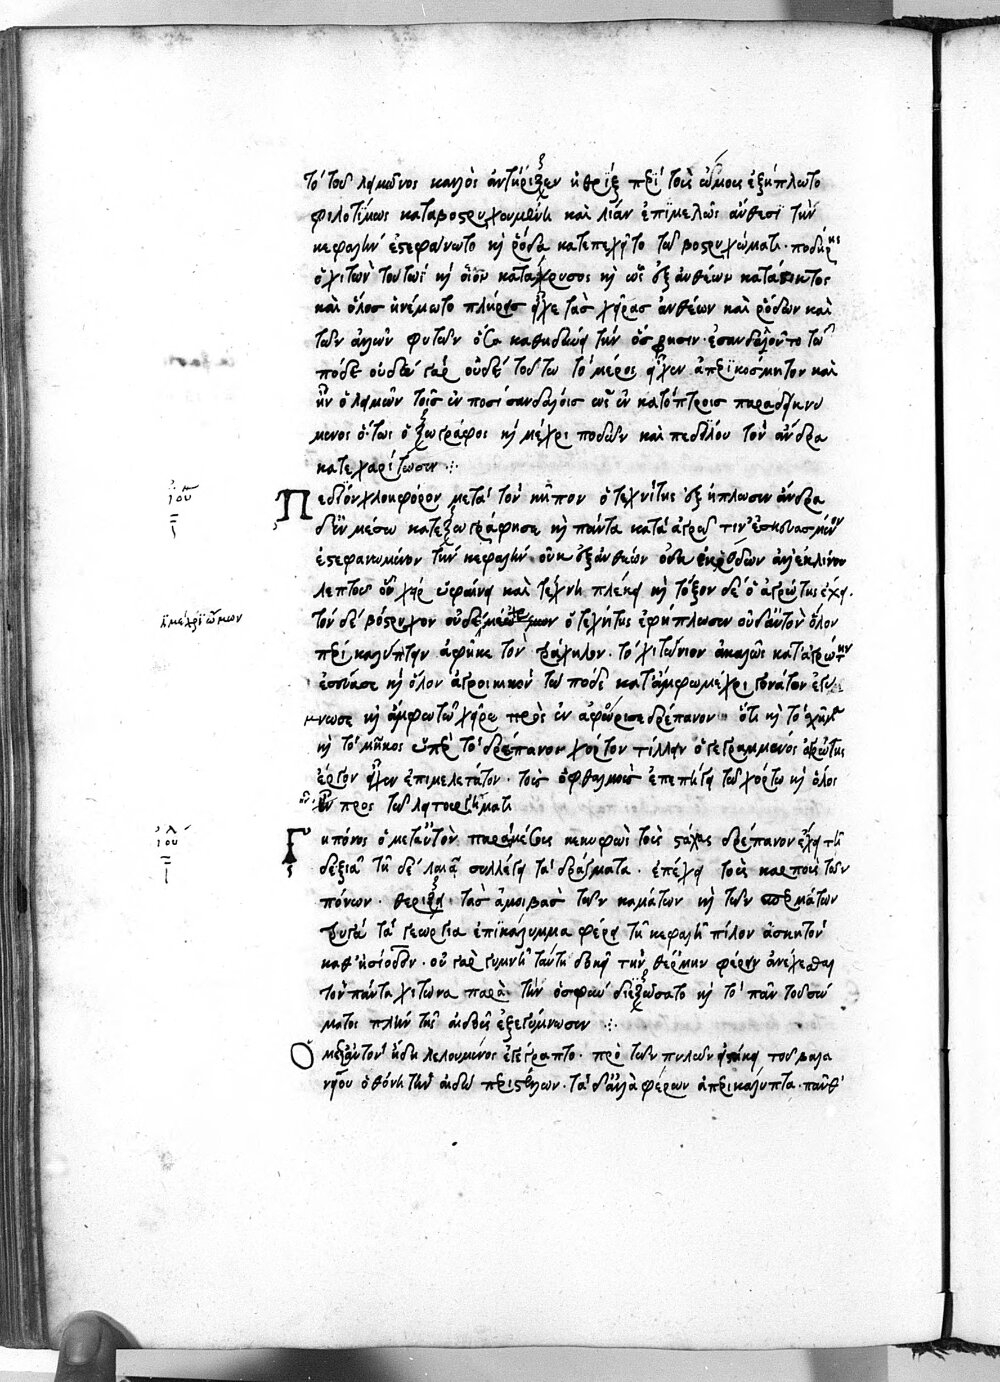 τὸ τοῦ λειμῶνος καλὸς ἀντήριζεν ἡ θρὶξ περὶ τοὺς ὤμους ἐξήπλωτο
φιλοτίμως καταβοστρυχουμένη καὶ λίαν ἐπιμελῶς ἄνθεσι τὴν
κεφαλὴν ἐστεφάνωτο καὶ ῥόδα κατεπέχυτο τῶ βοστρυχώματι. ποδήρης
ὁ χιτὼν τουτωὶ καὶ οἷον κατάχρυσος καὶ ὡς ἐξ ἀνθέων κατάστικτος
καὶ ὅλος ἠνέμωτο πλήρεις εἶχε τὰς χεῖρας ἀνθέων καὶ ῥόδων καὶ
τῶν ἄλλων φυτῶν ὅσα καθηδύνει τὴν ὄσφρησιν. ἐσανδάλουντο τὼ
πόδε οὐδὲ γὰρ οὐδὲ τούτω τὸ μέρος εἶχεν ἀπερικόσμητον καὶ
ἦν ὁ λειμὼν τοῖς ἐν ποσὶ σανδάλοις ὡς ἐν κατόπτροις παραδεικνύ
μενος οὕτως ὁ ζωγράφος καὶ μέχρι ποδῶν καὶ πεδίλου τὸν ἄνδρα
κατεχαρίτωσεν
Πεδίον χλοηφόρον μετὰ τὸν κῆπον ὁ τεχνίτης ἐξήπλωσεν ἄνδρα
δ' ἐν μέσω κατεζωγράφησε καὶ πάντα κατ' ἀγρόν τιν' ἐσκευασμένον
ἐστεφανωμένον τὴν κεφαλὴν. οὐκ ἐξ ἀνθέων οὐδ' ἐκ ῥόδων ἀλλ' ἐκ λίνου
λεπτοῦ ὃν χεὶρ ὑφαίνει καὶ τέχνη πλέκει καὶ τόξον δὲ ὁ ἀγρώτης ἔχει.
τὸν δὲ βόστρυχον οὐδὲ ὤμων ὁ τεχνίτης ἐφήπλωσεν οὐδ' αὐτὸν ὅλον
ἢ μέχρι ὤμων
περικαλύπτειν ἀφῆκε τὸν τράχηλον. τὸ χιτώνιον ἀκαλῶς κατ' ἀγρώτην
καὶ ὅλον ἀγροικικὸν τὼ πόδε κατάμφω μέχρι γονάτων ἐγύ
μνωσε καὶ ἀμφοτὼ χεῖρε πρὸς ἓν ἀφώρισε δρέπανον ὅτι καὶ τὸ
καὶ τὸ μῆκος ὑπὲρ τὸ δρέπανον χόρτον τίλλειν ὁ γεγραμμένος ἀγρώτης
ἔργον εἶχεν ἐπιμελέστατον. τοὺς ὀφθαλμοὺς ἐπεπήγει τῶ χόρτω καὶ ὅλος
ἦν πρὸς τῶ λειτουργήματι
Γηπόνος ὁ μετ' αὐτὸν κεκυφὼς τοὺς στάχυς δρέπανον ἔχει τῆ
δεξιᾶ τῆ δὲ λαιᾶ συλλέγει τὰ δράγματα. ἐπέχει τοὺς καρποὺς τῶν
πόνων. θερίζει τὰς ἀμοιβὰς τῶν καμάτων καὶ τῶν σπερμάτων
τρυγᾶ τὰ γεώργια ἐπικάλυμμα φέρει τῆ κεφαλῆ πῖλον ἀσκητὸν
καθ' ἡσίοδον. οὐ γὰρ γυμνῆ ταύτη δοκεῖ τὴν θέρμην φέρειν ἀνέχεσθαι
τὸν πάντα χιτῶνα παρὰ τὴν ὀσφὺν διεζώσατο καὶ τὸ πᾶν τοῦ σώ
ματος πλὴν τῆς αἰδοῦς ἐξεγύμνωσεν
Ὁ μετ' αὐτὸν ἤδη λελουμένος ἐγέγραπτο. πρὸ τῶν πυλῶν εἱστήκει τοῦ βαλα
νείου ὀθόνη τὴν αἰδῶ περιστέλλων. τὰ δ' ἄλλα φέρων ἀπερικάλυπτα. πᾶν θ'